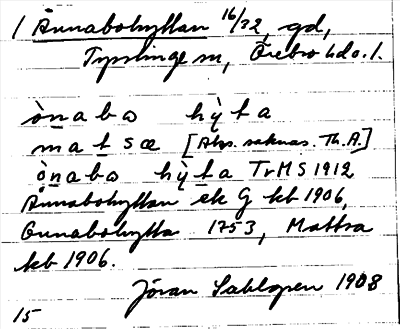 1 Ånnabohyttan 16/32, gd,
Tysslinge sn, Örebro hd o. l.
ònabo hỳta
matsæ [Abs. saknas. Th. A.]
ònabo hỳta TrMS 1912
Ånnabohyttan ek G kb 1906,
Onnabohytta 1753, Mattsa
kb 1906.
Jöran Sahlgren 1908
15